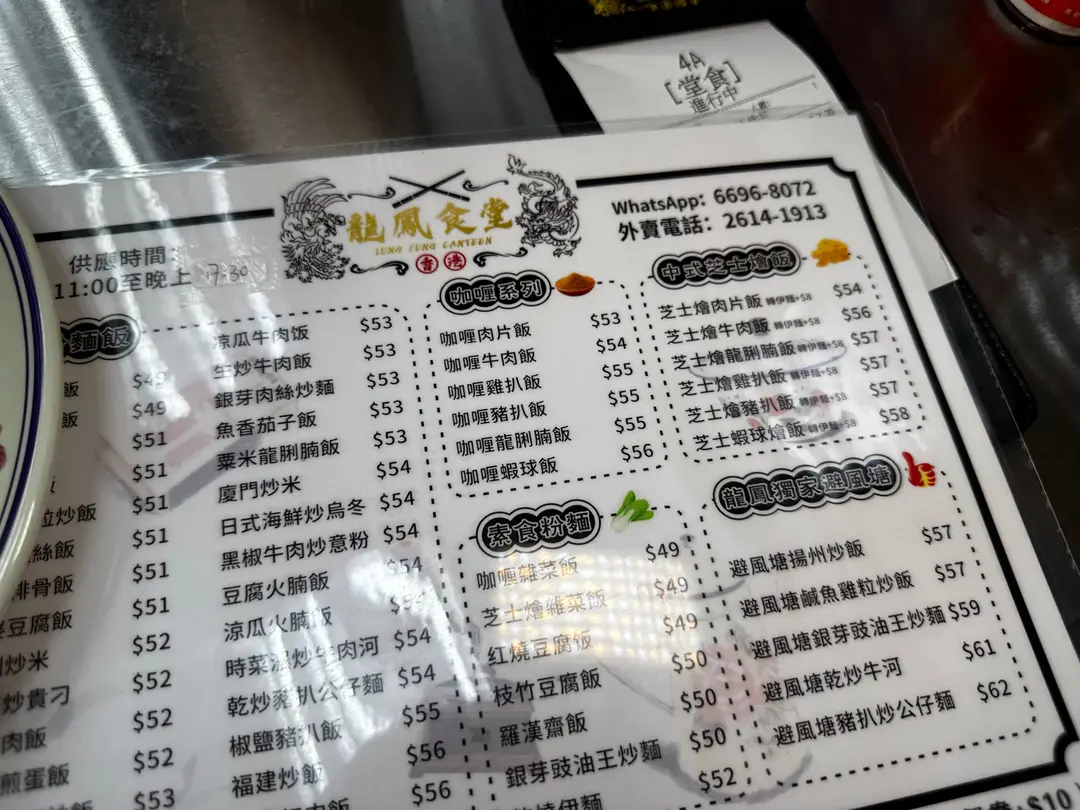 4A
[堂食]
進行中
龍鳳食堂
LUNG FUNG CANTEEN
香港
WhatsApp: 6696-8072
外賣電話: 2614-1913
供應時間:
11:00至晚上 9:30
麵飯
飯 $49
飯 $49
$51
$51
粒炒飯 $51
絲飯 $51
排骨飯 $51
豆腐飯 $51
炒米 $52
炒貴刁 $52
肉飯 $52
煎蛋飯 $52
$53
涼瓜牛肉饭 $53
生炒牛肉飯 $53
銀芽肉絲炒麵 $53
魚香茄子飯 $53
粟米龍脷腩飯 $53
廈門炒米 $54
日式海鮮炒烏冬 $54
黑椒牛肉炒意粉 $54
豆腐火腩飯 $54
涼瓜火腩飯 $54
時菜濕炒牛肉河 $54
乾炒豬扒公仔麵 $54
椒鹽豬扒飯 $55
福建炒飯 $56
$56
咖喱系列
咖喱肉片飯 $53
咖喱牛肉飯 $54
咖喱雞扒飯 $55
咖喱豬扒飯 $55
咖喱龍脷腩飯 $55
咖喱蝦球飯 $56
素食粉麵
咖喱雜菜飯 $49
芝士燴雜菜飯 $49
红燒豆腐饭 $49
枝竹豆腐飯 $50
羅漢齋飯 $50
銀芽豉油王炒麵 $50
乾燒伊麵 $52
中式芝士燴飯
芝士燴肉片飯 轉伊麵+$8 $54
芝士燴牛肉飯 轉伊麵+$8 $56
芝士燴龍脷腩飯 轉伊麵+$8 $57
芝士燴雞扒飯 轉伊麵+$8 $57
芝士燴豬扒飯 轉伊麵+$8 $57
芝士蝦球燴飯 轉伊麵+$8 $58
龍鳳獨家避風塘
避風塘揚州炒飯 $57
避風塘鹹魚雞粒炒飯 $57
避風塘銀芽豉油王炒麵 $59
避風塘乾炒牛河 $61
避風塘豬扒炒公仔麵 $62
$10